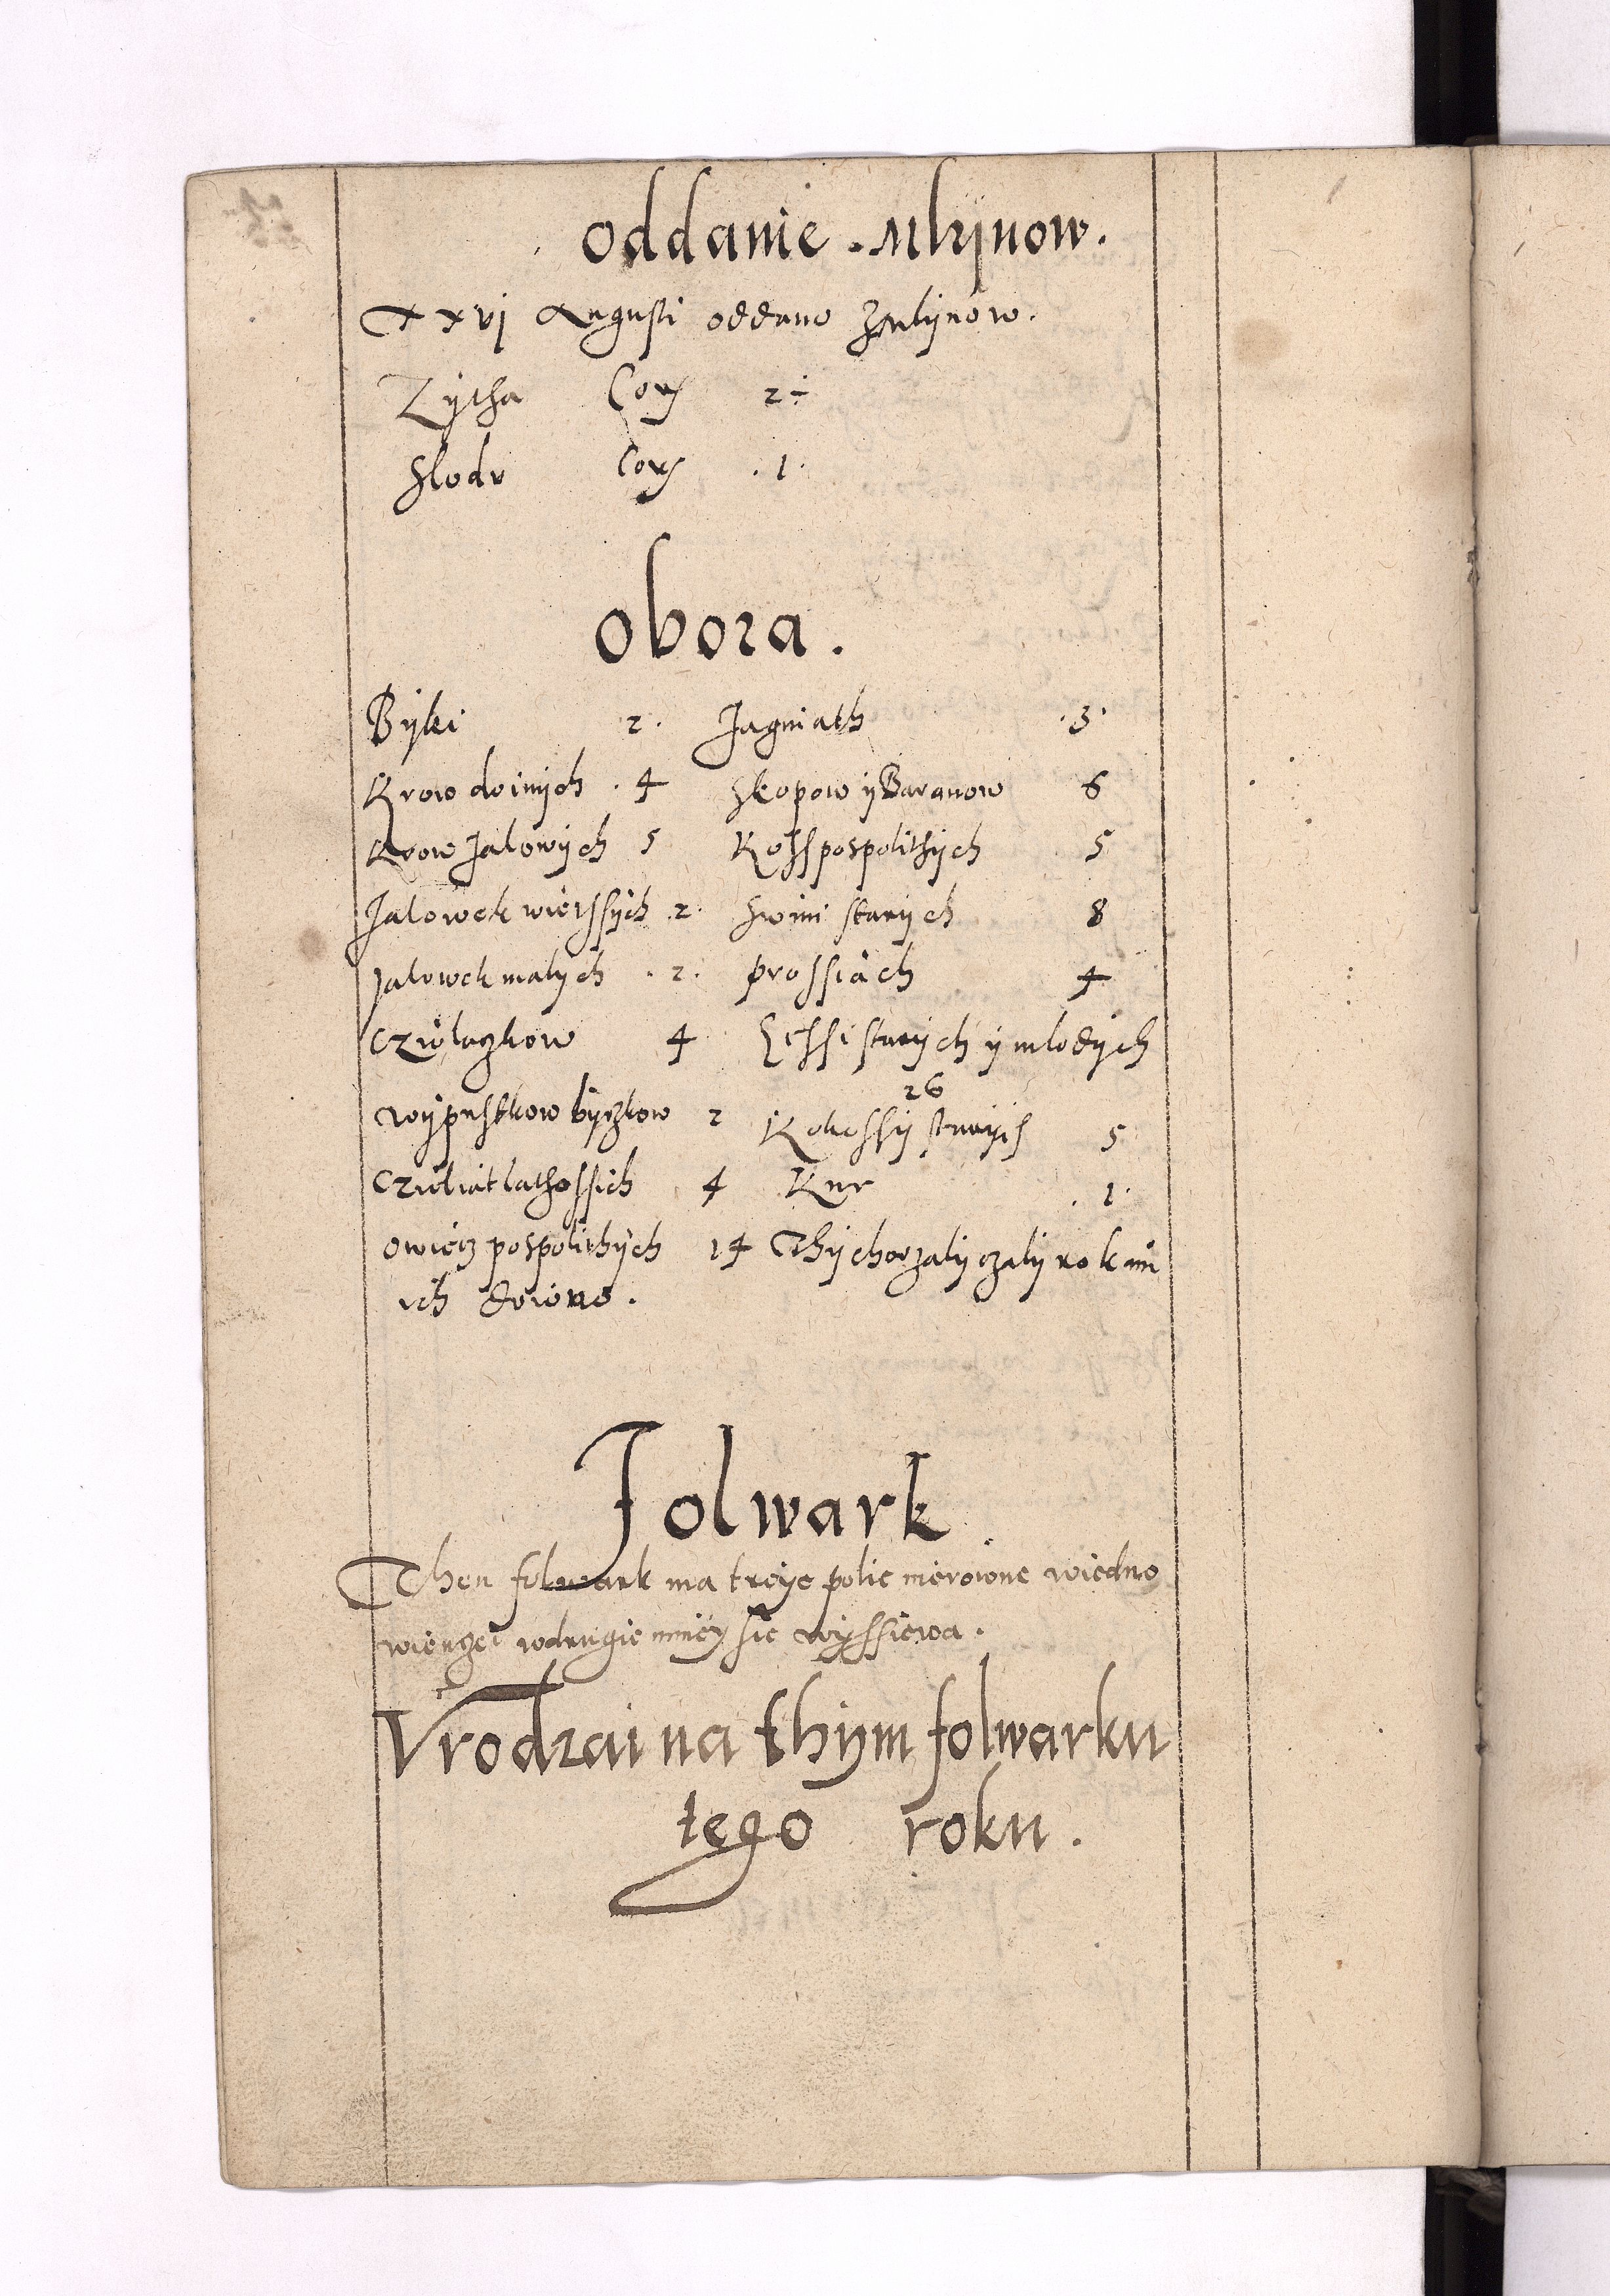 oddanie . Mlijnow .
xxvj Augusti oddano Zmlijnow .
Zijtha Cor 2 ÷
Slodv Cor . 1 .
obora .
Bijki 2 . Jagniath . 3 .
Krow doinijch . 4 Skopow ij Baranow 6
Krow Jalowijch 5 Koss pospolithijch 5
Jalowek wiethssijch . 2 . Swini starijch 8
Jalowek malijch . 2 . prossiąch 4
Czielaczkow 4 Gessi starijch ij mlodijch
26
wijpustkow bijczkow 2 Kokossij starijch 5
Czieliat lathossich 4 Kur . 1 .
owiecz pospolithijch 14 Thij chorzalij czalij rok nie
ich doiono .
Folwark
Then folwark ma troije polie nierowne wiedno
wienczei wdrugie mniey sie wyssiewa .
Vrodzai na thijm folwarku
tego roku .